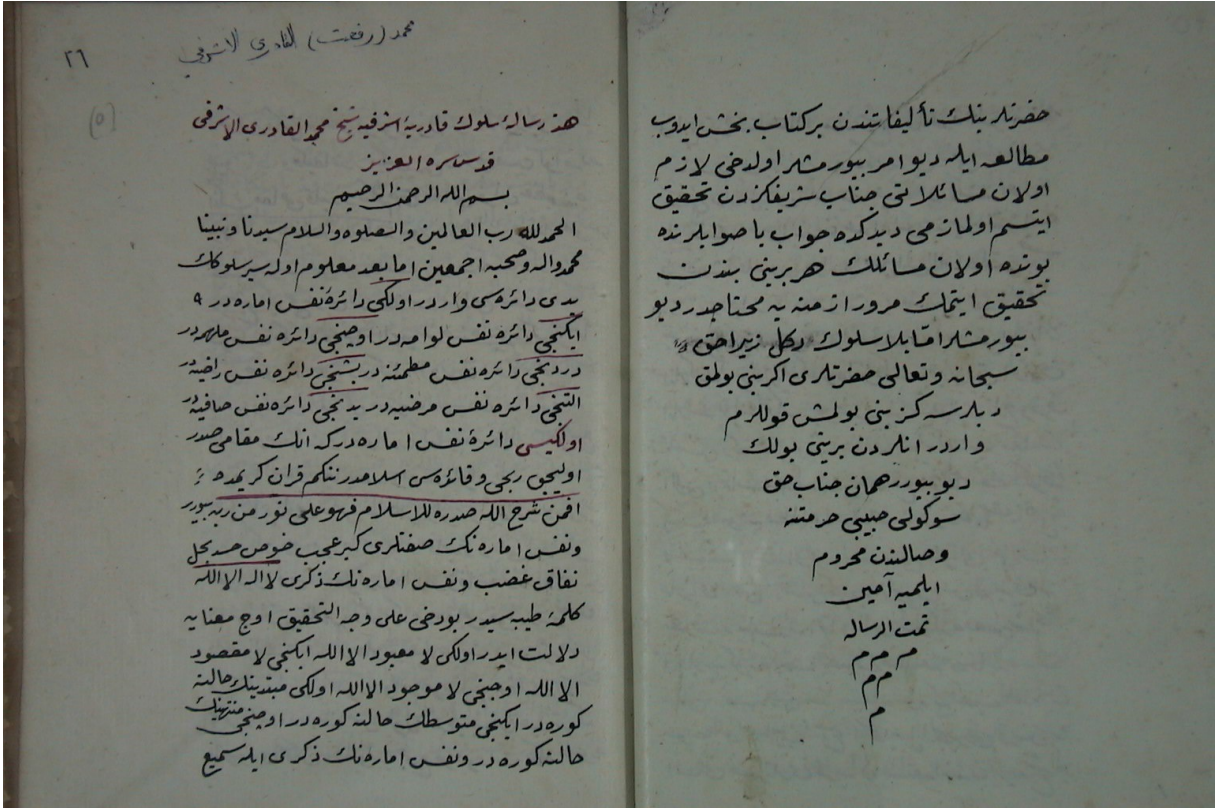 حضرتلرينك تأليفاتندن بركتاب بخش ايدوب
مطالعه ايله ديو امر بيورمشلر اولدخى لازم
اولان مسائلاتى جناب شريفكزدن تحقيق
ايتسم اولمازمى ديدكده جواب با صوابلرنده
بونده اولان مسائلك هر برينى بندن
تحقيق ايتمك مرور ازمنه يه محتاجدر ديو
بيورمشلر اقا بلا سلوك دكل زيرا حق
سبحانه وتعالى حضرتلرى اكر بنى بولمق
ديلرسه كز بنى بولمش قوللرم
واردر انلردن برينى بولك
ديو بيورر همان جناب حق
سوكولى حبيبى حرمتنه
وصالندن محروم
ايلميه آمين
تمت الرساله
م م م
م م
م
محمد (رفعت) القادرى الاشرفي
٢٦
(٥)
هذه رسالهٔ سلوك قادريهٔ اشرفيه شيخ محمد القادرى الاشرفى
قدس سره العزيز
بسم الله الرحمن الرحيم
الحمد لله رب العالمين والصلوه والسلام سيدنا ونبينا
محمد واله وصحبه اجمعين اما بعد معلوم اوله سير سلوكك
يدى دائره سى واردر اولكى دائرهٔ نفس اماره در ٩
ايكنجى دائره نفس لوامه در اوچنجى دائره نفس ملهمه در
دردنجى دائره نفس مطمئنه در بشنجى دائره نفس راضيه در
التنجى دائره نفس مرضيه در يدنجى دائره نفس صافيه در
اولكيسى دائرهٔ نفس اماره دركه انك مقامى صدر
وقائزه سى اسلامدر نتكم قران كريمده
افمن شرح الله صدره للاسلام فهو على نور من ربه بيورر
ونفس اماره نك صفتلرى كبر عجب حرص حسد بخل
نفاق غضب ونفس اماره نك ذكرى لا اله الا الله
كلمهٔ طيبه سيدر بودخى على وجه التحقيق اوچ معنايه
دلالت ايدر اولكى لا معبود الا الله ايكنجى لا مقصود
الا الله اوچنجى لا موجود الا الله اولكى مبتدينك حالنه
كوره در ايكنجى متوسطك حالنه كوره در اوچنجى منتهينك
حالنه كوره در ونفس اماره نك ذكرى ايله سميع